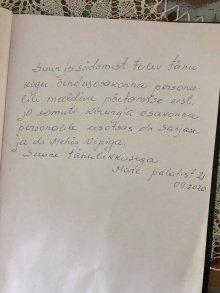 Suur ja südamest tulev tänu
kogu õendusosakonna persona-
lile meeldiva põetamise eest.
ja samuti kirurgia osakonna
personalile eesotsas dr
ja dr
Suure tänulikkusega
palatist 21
2020